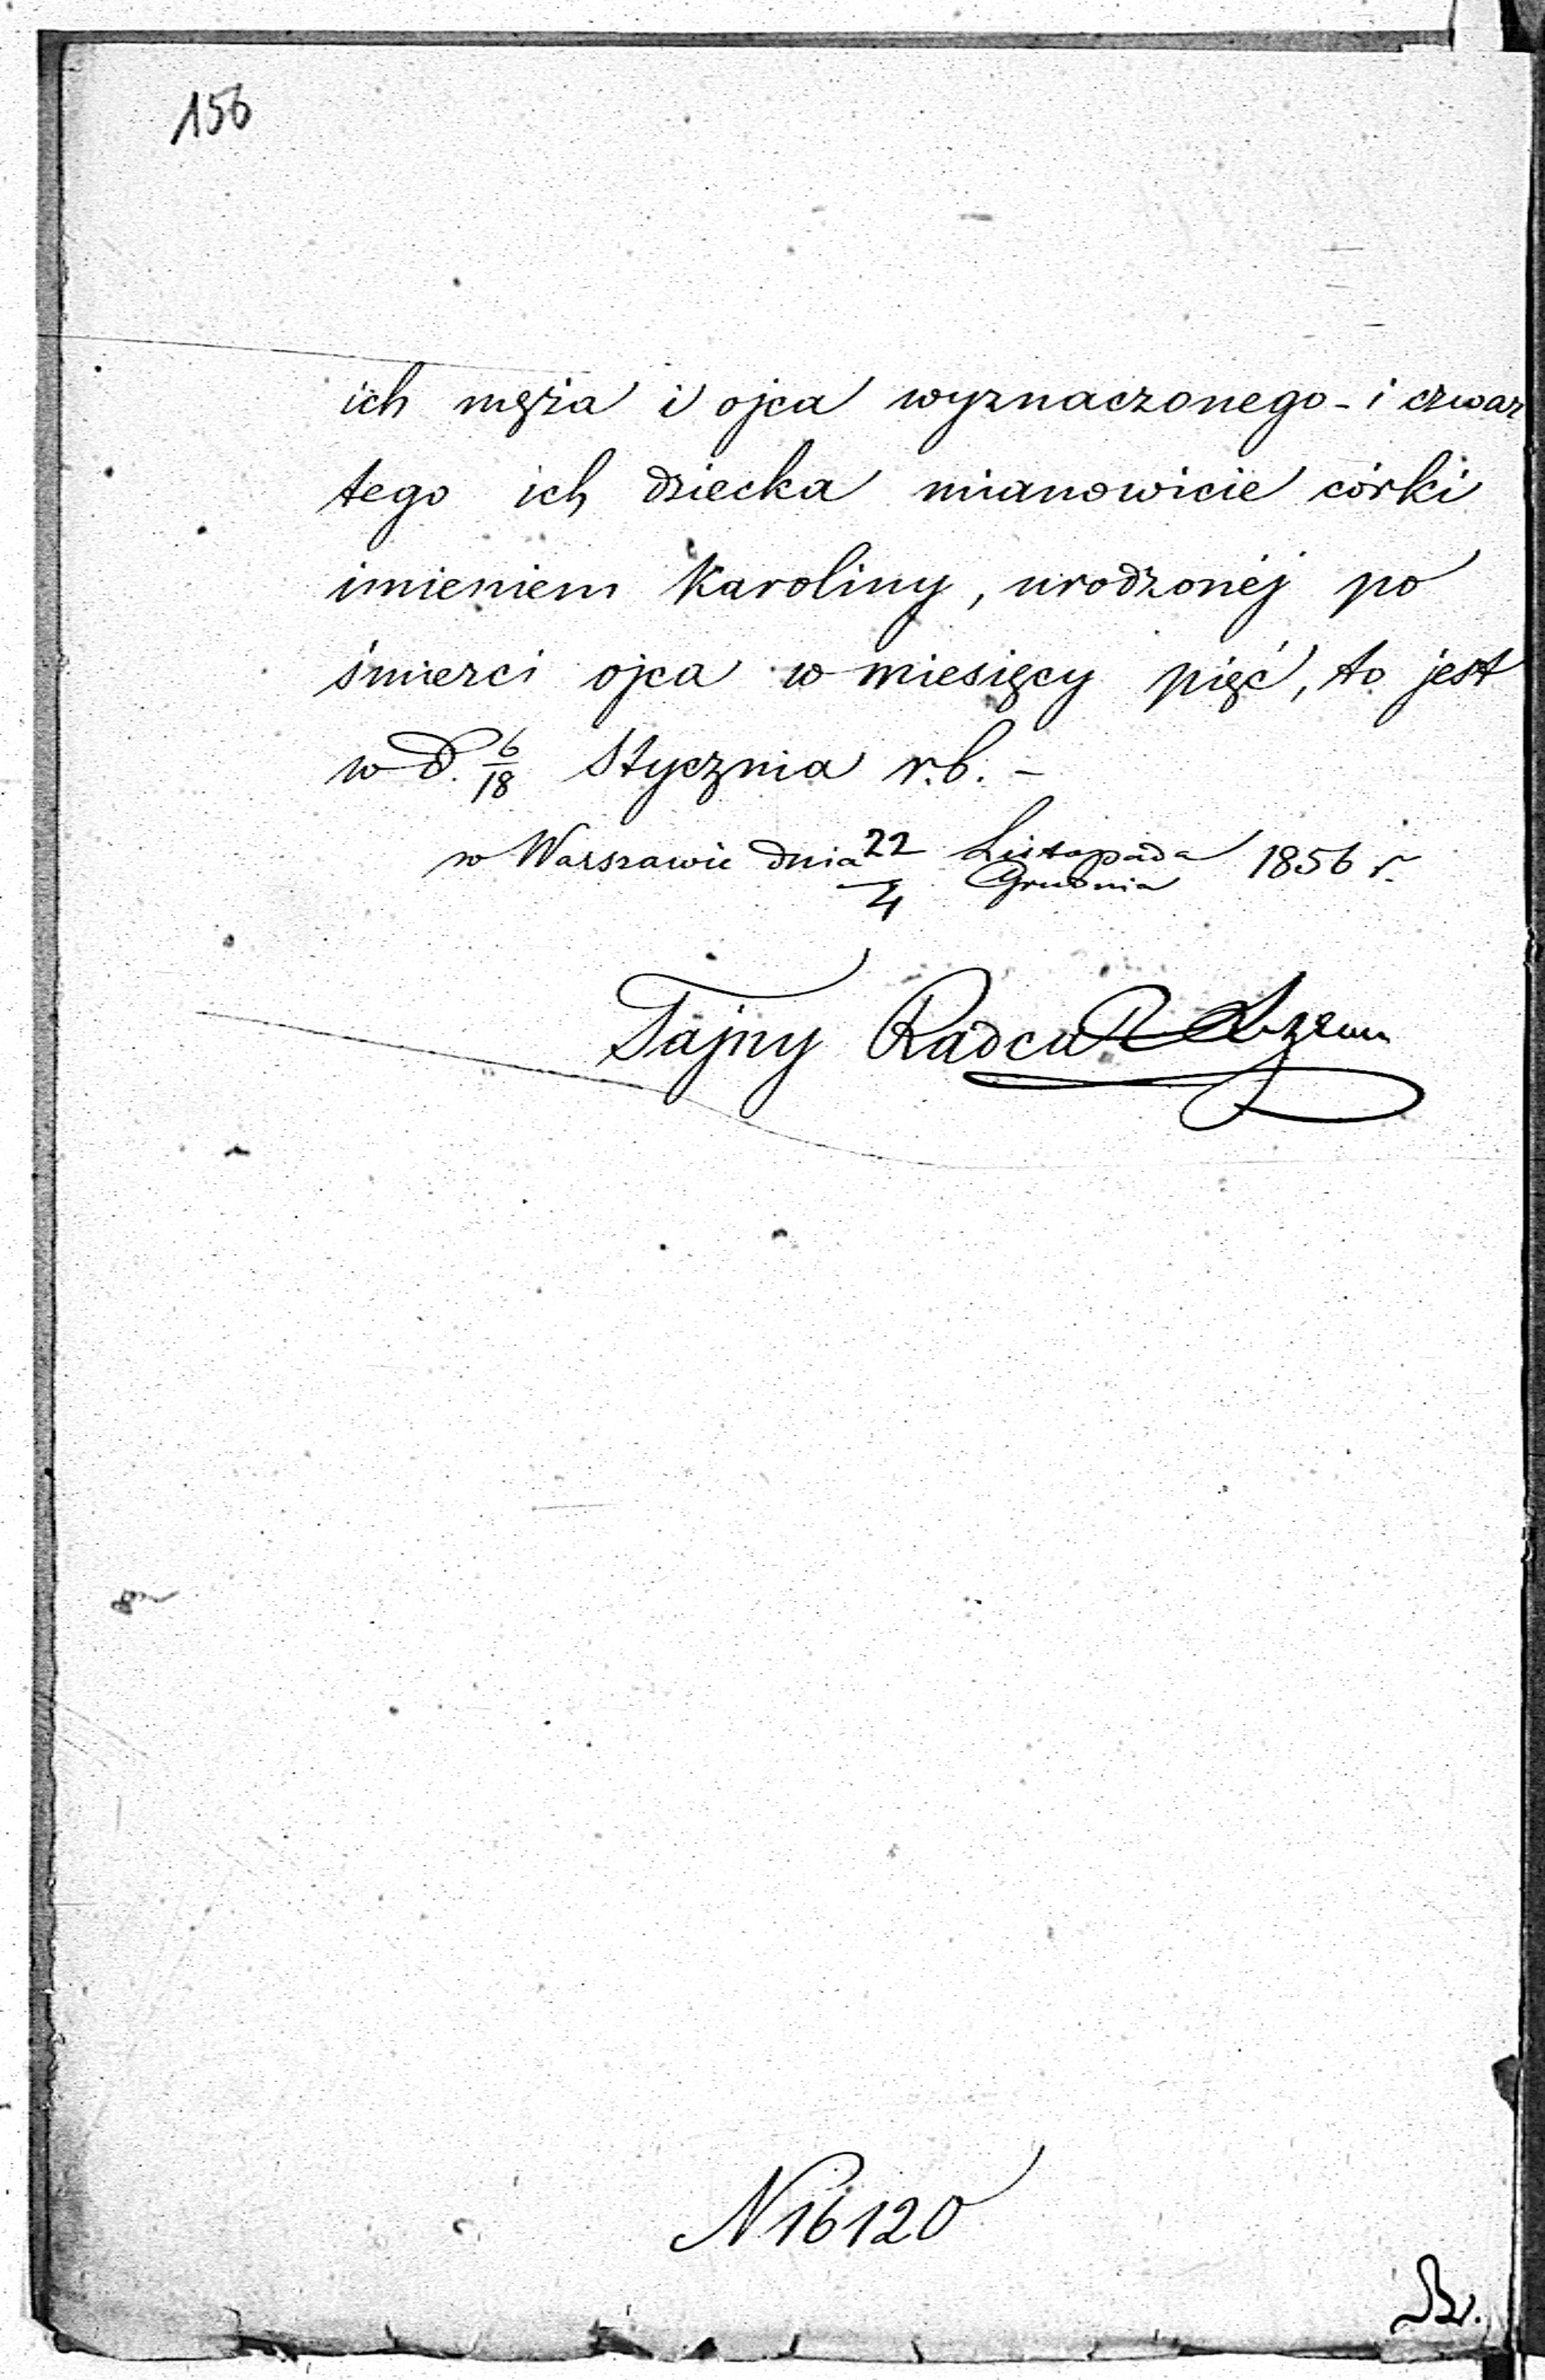 156
ich męża i ojca wyznaczonego - i czwar
tego ich dziecka mianowicie córki
imieniem Karoliny, urodzonéj po
śmierci ojca w miesięcy pięć, to jest
w d. 6/18 Stycznia r.b. -
w Warszawie dnia 22/4 Listopada/Grudnia 1856 r.
Tajny Radca
N 16120